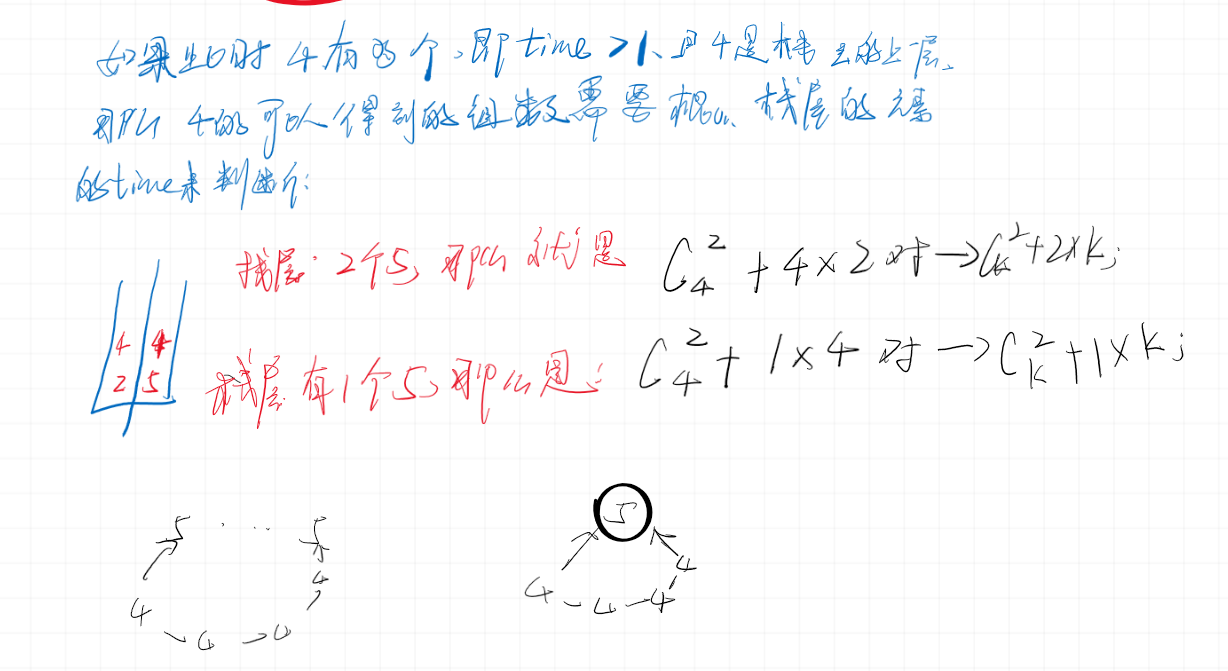 如果此时 4有多个,即time >1、且4是栈去的上层、
那么 4的可以得到的组数需要根据 栈层的元素
的time来判断:
栈层:2个5,那么就是
C₄² + 4×2对→Cₖ²+2×k;
4 4
2 5
栈层有1个5,那么是:
C₄² + 1×4 对→Cₖ²+1×k;
5 ... 5
5
4
4
4
4 4
4 4 4